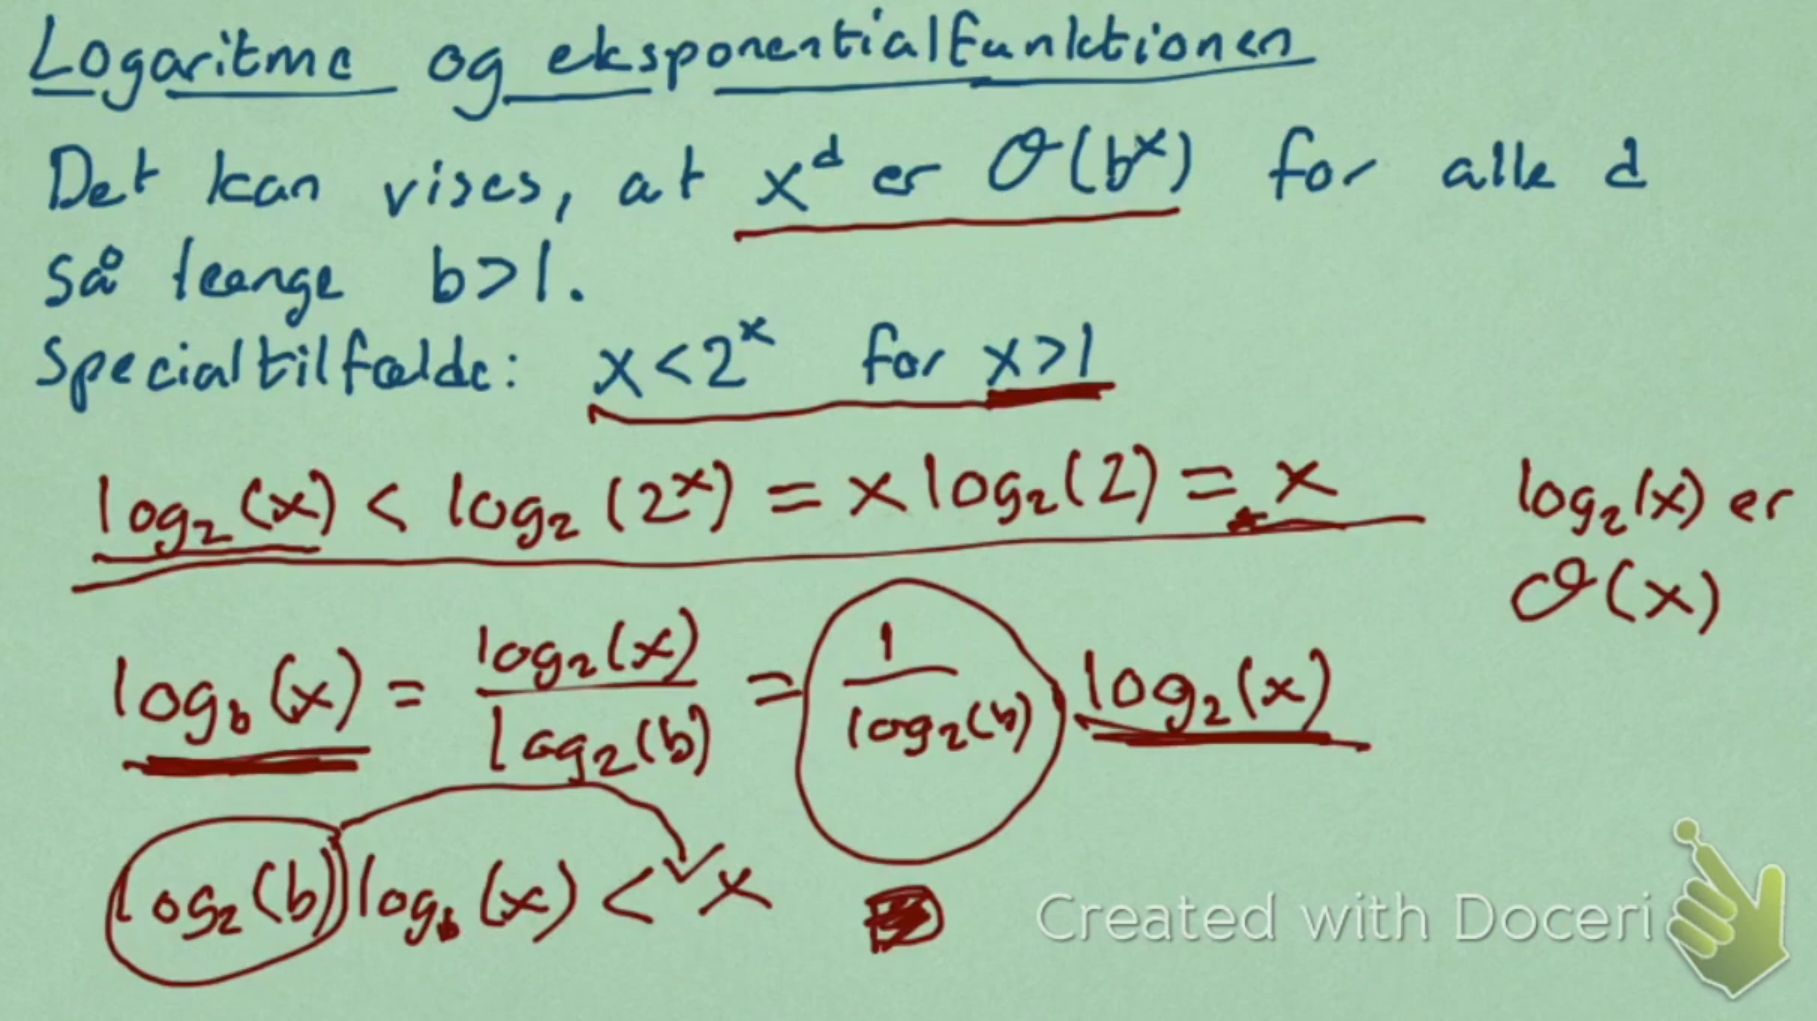 Logaritme og eksponentialfunktionen
Det kan vises, at x^d er O(b^x) for alle d
så længe b>1.
Specialtilfælde: x<2^x for x>1
log₂(x) < log₂(2^x) = x log₂(2) = x
log₂(x) er
O(x)
log_b(x) = log₂(x)/log₂(b) = 1/log₂(b) log₂(x)
log₂(b) log_b(x) < x
Created with Doceri